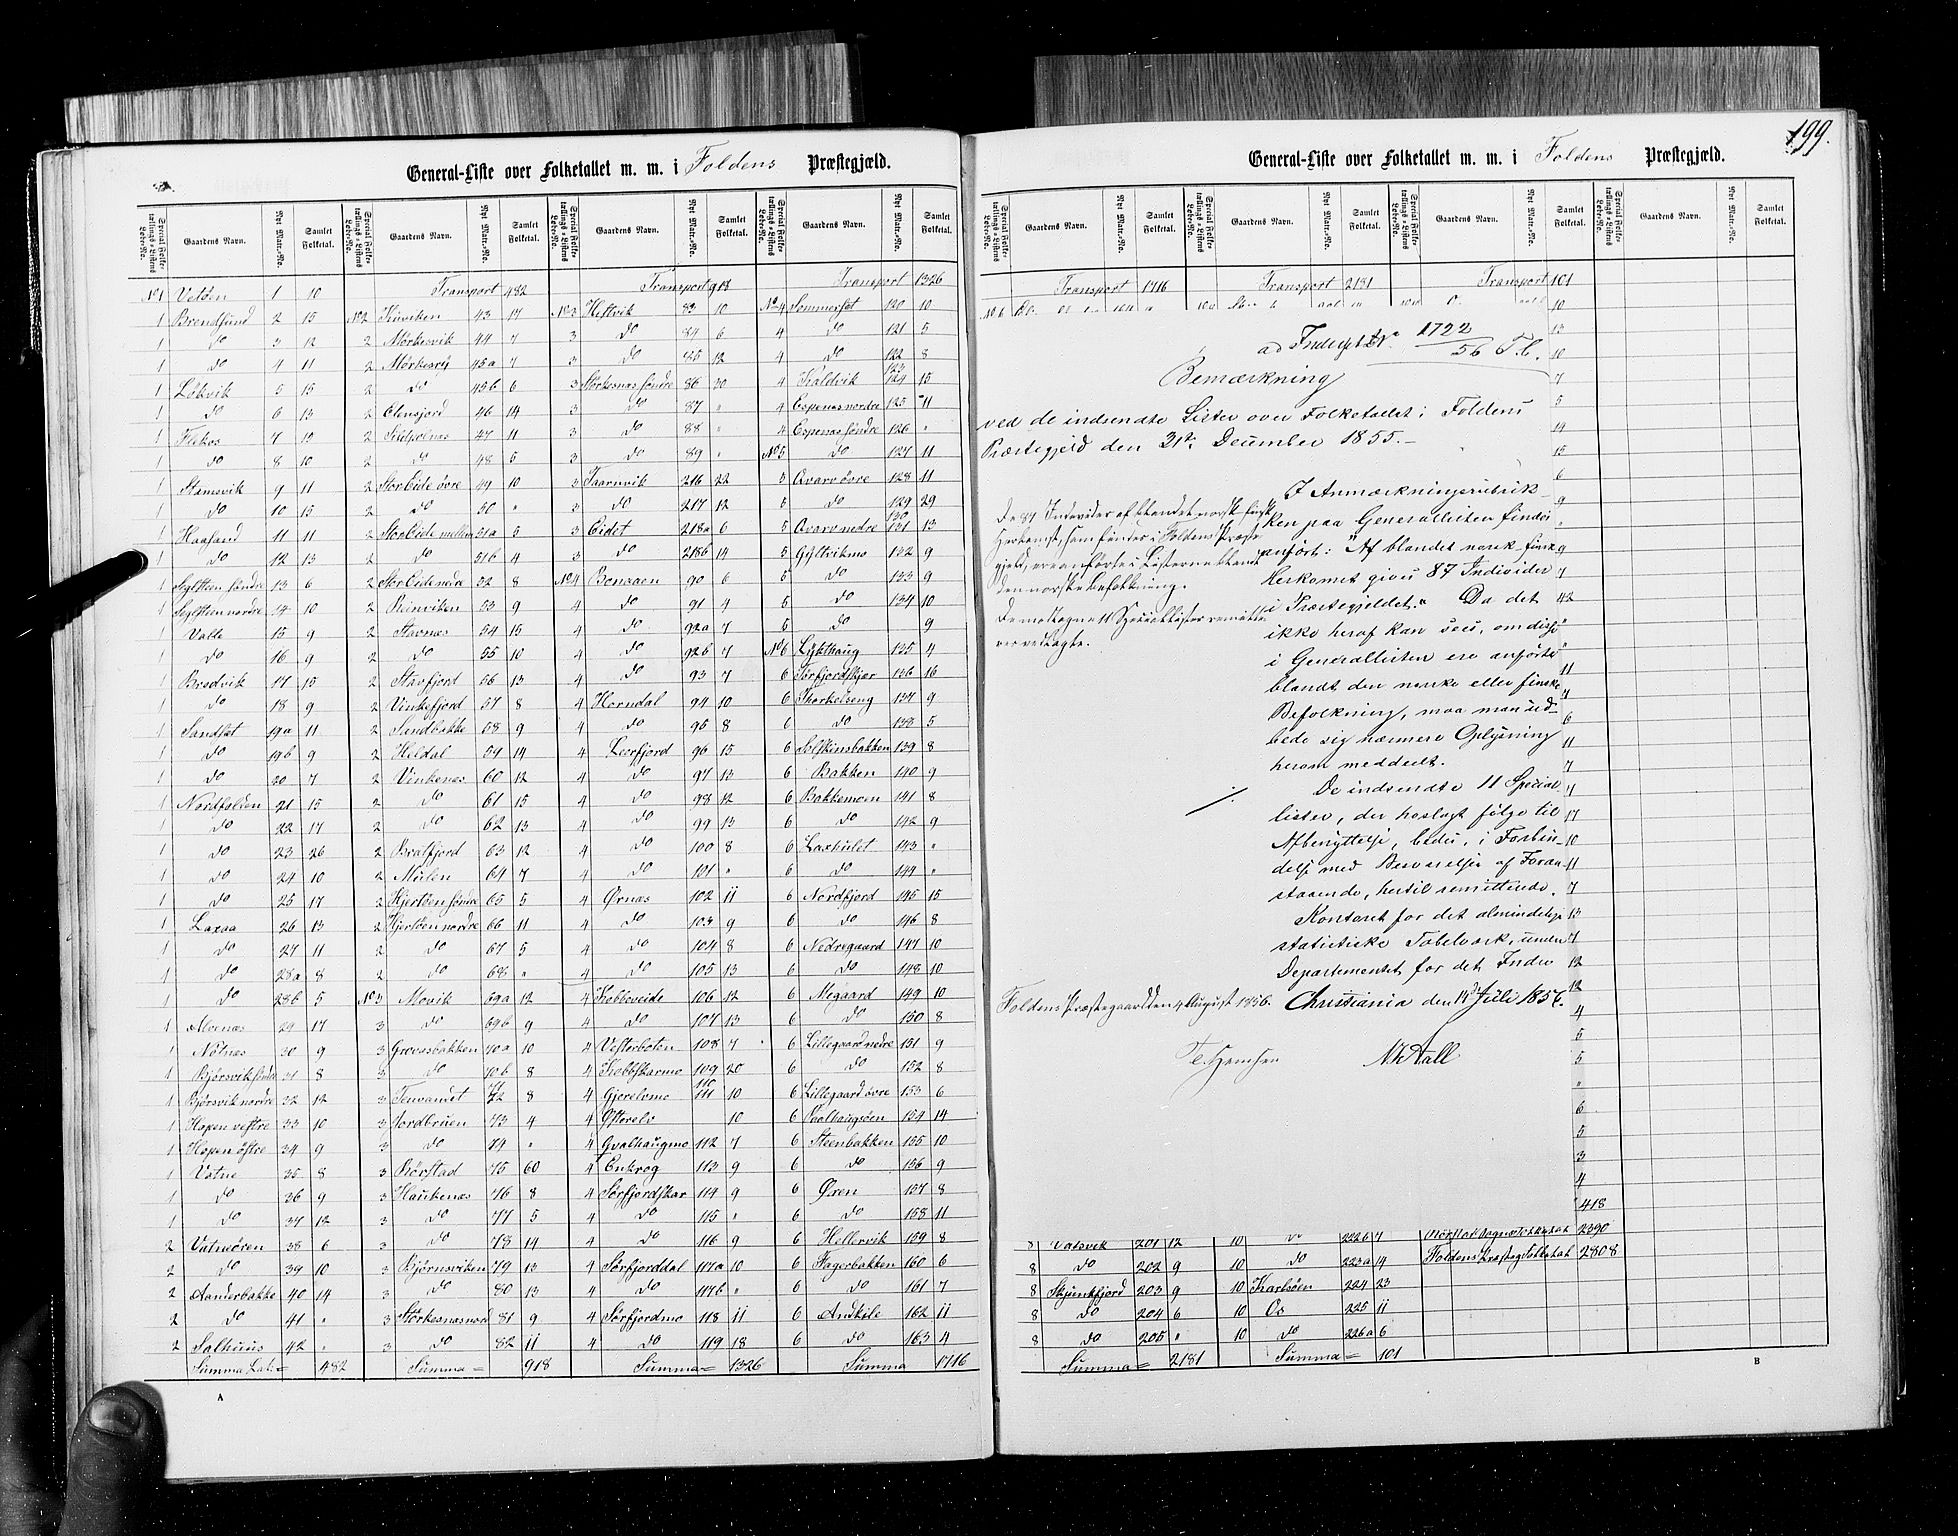 General-Liste over Folketallet m. m. i Foldens Præstegjæld.
Gaardens Navn. Nyt Matr.-No. Samlet Folketal.
Transport 482 Transport 918 Transport 1326
No 1 Vetøen 1 10
1 Brendsund 2 15 No 2 43 17 No 3 Hestvik 83 10 No 4 Sommerset 120 10
1 do 3 12 2 Mørkesvik 44 7 3 do 84 6 4 do 121 5
1 do 4 11 2 45a 7 3 do 85 12 4 do 122 8
1 Løkvik 5 15 2 do 45b 6 3 Størkesnæs søndre 86 30 4 Kaldvik 123 124 15
1 do 6 13 2 46 14 3 do 87 " 4 Espenæs nordre 125 11
1 7 10 2 47 11 3 do 88 " 4 Espenæs søndre 126 "
1 do 8 10 2 do 48 5 3 do 89 " No 5 do 127 11
1 Stamsvik 9 11 2 StorEide øvre 49 10 3 Taarnvik 216 22 5 Qvarv øvre 128 11
1 do 10 15 2 do 50 " 3 do 217 12 5 do 129 29
1 11 11 2 StorEide mellem 51a 5 3 Eidet 218a 6 5 Qvarv nedre 130 131 13
1 do 12 13 2 do 51b 4 3 do 218b 14 5 Gyltvikmo 132 9
1 13 6 2 StorEide nedre 52 8 No 4 Bonaaen 90 6 5 do 133 9
1 14 10 2 Reinviken 53 9 4 do 91 4 5 do 134 10
1 Valle 15 9 2 Stavnæs 54 15 4 do 92a 7 5 do 9
1 do 16 9 2 do 55 10 4 do 92b 7 No 6 135 4
1 Bredvik 17 15 2 Stavfjord 56 13 4 do 93 7 6 Sørfjordskjær 136 16
1 do 18 9 2 Vinkefjord 57 8 4 Horndal 94 10 6 Storkelseng 137 9
1 Sandset 19a 11 2 Sandbakke 58 9 4 do 95 8 6 do 138 5
1 do 19b 9 2 Heldal 59 14 4 Leerfjord 96 15 6 Solskinsbakken 139 8
1 do 20 7 2 Vinkenæs 60 12 4 do 97 13 6 Bakken 140 9
1 Nordfolden 21 15 2 do 61 15 4 do 98 12 6 Bakkemoen 141 8
1 do 22 17 2 do 62 13 4 do 99 13 6 do 142 9
1 do 23 26 2 Bratfjord 63 12 4 do 100 8 6 Laxhulet 143 "
1 do 24 10 2 Mulen 64 7 4 do 101 " 6 do 144 "
1 do 25 17 2 Hjertøen søndre 65 5 4 Ørnæs 102 11 6 Nordfjord 145 15
1 Laxaa 26 13 2 Hjertøen nordre 66 11 4 do 103 9 6 do 146 8
1 do 27 11 2 do 67 5 4 do 104 8 6 Nedregaard 147 10
1 do 28a 8 2 do 68 " 4 do 105 13 6 do 148 10
1 do 28b 5 No 3 Movik 69a 12 4 Kobbveide 106 12 6 Megaard 149 10
1 Alvenæs 29 17 3 do 69b 9 4 do 107 13 6 do 150 8
1 Nøtnæs 30 9 3 Groensbakken 70a 10 4 Vesterboten 108 7 6 Lillegaard nedre 151 9
1 Bjørsvik søndre 31 8 3 do 70b 8 4 Kobbskarmo 109 20 6 do 152 8
1 Bjørsvik nordre 32 12 3 71 72 8 4 Gjerelvmo 110 111 10 6 Lillegaard øvre 153 6
1 Hopen vestre 33 10 3 Jordbruen 73 4 4 Østerelv 10 6 154 14
1 Hopen østre 34 9 3 do 74 " 4 Gvalhaugmo 112 7 6 Steenbakken 155 10
1 Vatne 35 8 3 Rørstad 75 60 4 Enkrog 113 9 6 do 156 9
1 do 36 9 3 Haukenæs 76 8 4 Sørfjordskar 114 9 6 Øren 157 8
1 do 37 12 3 do 77 5 4 do 115 " 6 do 158 11
2 Vatnøren 38 6 3 do 78 14 4 do 116 9 6 Hellervik 159 8
2 do 39 10 3 Bjørnsviken 79 13 4 Sørfjorddal 117a 10 6 Fagerbakken 160 6
2 Aanderbakke 40 14 3 do 80 13 4 do 117b " 6 do 161 7
2 do 41 " 3 Størkesnæs nord 81 9 4 Sørfjordmo 118 11 6 Andkile 162 11
2 Salhuus 42 " 3 do 82 11 4 do 119 18 6 do 163 4
Summa Lat. = 482 Summa = 918 Summa = 1326 Summa 1716
A
199.
General-Liste over Folketallet m. m. i Foldens Præstegjæld.
Gaardens Navn. Nyt Matr.-No. Samlet Folketal.
Transport 1716 Transport 2181 Transport 101
ad Indregist. Nr. 1722/56 T.C.
Bemærkning
ved de indsendte Lister over Folketallet i Foldens
Præstegjeld den 31te December 1855.-
I Anmærkningsrubrik-
ken paa Generallisten findes
anført: "Af blandet norsk-finsk
Herkomst gives 87 Individer
i Præstegjeldet." Da det
ikke heraf kan sees, om disse
i Generallisten ere anførte
blandt den norske eller finske
Befolkning, maa man ud-
bede sig nærmere Oplysning
herom meddeelt.
De indsendte 11 Special-
lister, der hoslagt følge til
Afbenyttelse, bedes, i Forbin-
delse med Besvarelse af Foran-
staaende, hertil remitterede.
Kontoret for det almindelige
statistiske Tabelværk, under
Departementet for det Indre
Christiania den 14de Juli 1856.
De 87 Individer af blandet norsk finsk
Herkomst, som findes i Foldens Præste-
gjeld, ere anførte i Listerne blandt
den norske Befolkning.
De modtagne 11 Speciallister remitteres
vedlagte.
Foldens Præstegaard den 4 August 1856.
13
10
7
5
14
15
6
9
"
9
7
42
"
11
7
6
11
7
4
17
10
11
7
13
7
12
12
4
5
5
"
6
5
3
4
418
8 Valsvik 201 12 10 do 222b 7 2390
8 do 202 9 10 do 223a 19 Foldens Præsteg. Folketal 2808
8 Skjunkfjord 203 9 10 Karlsøen 224 23
8 do 204 6 10 Os 225 11
8 do 205 " 10 do 226a 6
Summa = 2181 Summa = 101
B